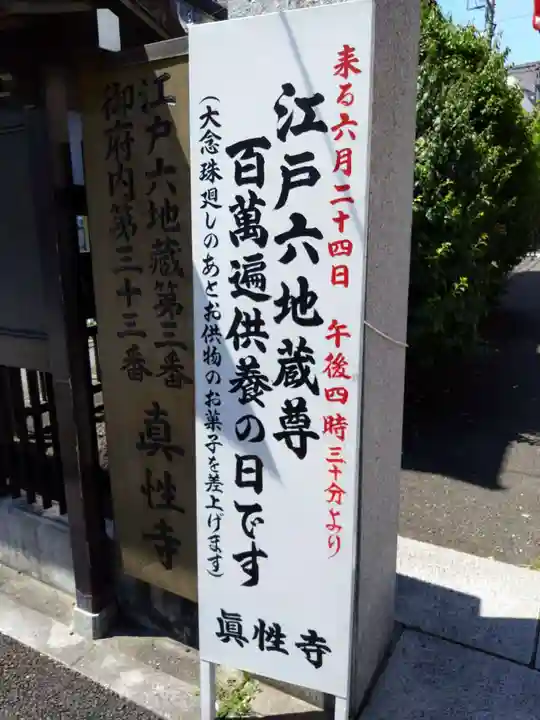 来る六月二十四日 午後四時三十分より
江戸六地蔵尊
百萬遍供養の日です
(大念珠廻しのあとお供物のお菓子を差上げます)
眞性寺
江戸六地蔵第三番
御府内第三十三番
真性寺